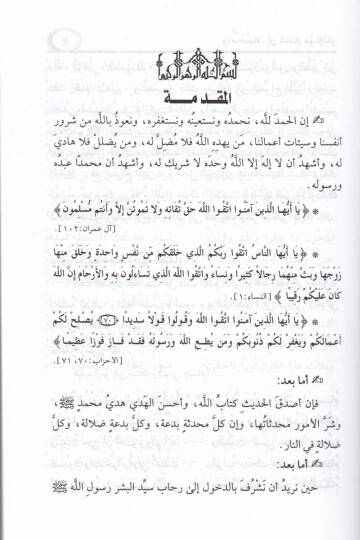 بسم الله الرحمن الرحيم
المقدمة
إن الحمدَ للَّه، نحمدُه ونستعينُه ونستغفره، ونعوذُ باللَّه من شرور
أنفسنا وسيئات أعمالنا، مَن يهدِهِ اللَّهُ فلا مُضلَّ له، ومن يُضللْ فلا هاديَ
له، وأشهدُ أن لا إلهَ إلا اللَّهُ وحدَه لا شريك له، وأشهدُ أن محمدًا عبدُه
ورسوله.
* ﴿ يَا أَيُّهَا الَّذِينَ آمَنُوا اتَّقُوا اللَّهَ حَقَّ تُقَاتِهِ وَلا تَمُوتُنَّ إِلاَّ وَأَنتُم مُّسْلِمُونَ ﴾
[آل عمران: ١٠٢].
* ﴿ يَا أَيُّهَا النَّاسُ اتَّقُوا رَبَّكُمُ الَّذِي خَلَقَكُم مِّن نَّفْسٍ وَاحِدَةٍ وَخَلَقَ مِنْهَا
زَوْجَهَا وَبَثَّ مِنْهُمَا رِجَالاً كَثِيرًا وَنِسَاءً وَاتَّقُوا اللَّهَ الَّذِي تَسَاءَلُونَ بِهِ وَالأَرْحَامَ إِنَّ اللَّهَ
كَانَ عَلَيْكُمْ رَقِيبًا ﴾ [النساء: ١].
* ﴿ يَا أَيُّهَا الَّذِينَ آمَنُوا اتَّقُوا اللَّهَ وَقُولُوا قَوْلاً سَدِيدًا ﴿٧٠﴾ يُصْلِحْ لَكُمْ
أَعْمَالَكُمْ وَيَغْفِرْ لَكُمْ ذُنُوبَكُمْ وَمَن يُطِعِ اللَّهَ وَرَسُولَهُ فَقَدْ فَازَ فَوْزًا عَظِيمًا ﴾
[الأحزاب: ٧٠، ٧١].
أما بعد:
فإن أصدقَ الحديثِ كتابُ اللَّه، وأحسنَ الهَدي هديُ محمدٍ ﷺ،
وشرَّ الأمور محدثاتُها، وإن كلَّ محدثةٍ بدعة، وكلَّ بدعة ضلالة، وكلَّ
ضلالةٍ في النار.
أما بعد:
حين نريد أن نَشْرُفَ بالدخول إلى رحاب سيِّد البشر رسولِ اللَّه ﷺ